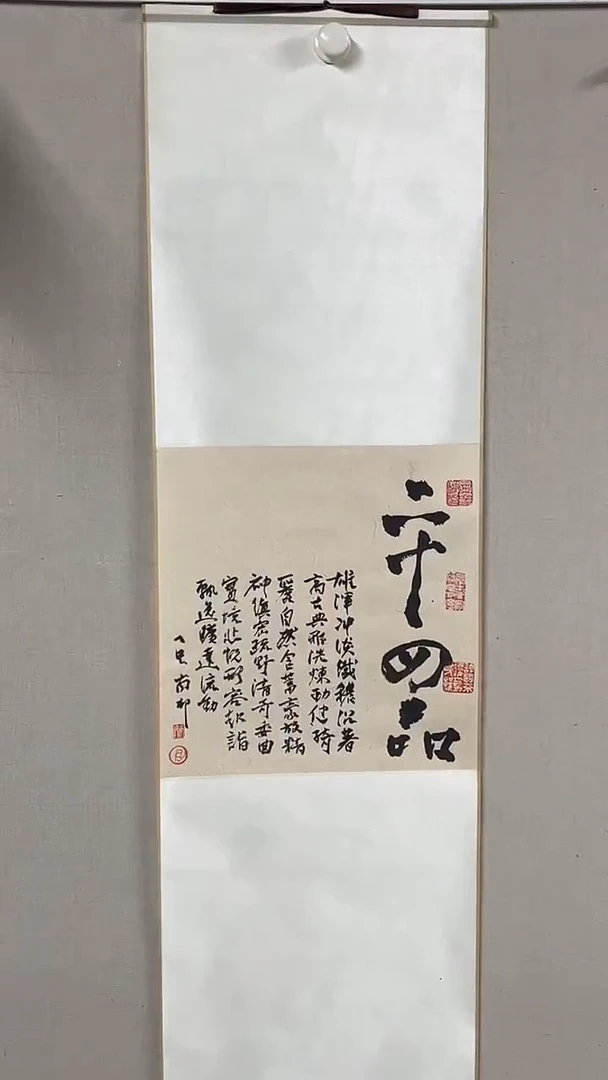 二十四品
雄渾冲淡纖穠沉著
高古典雅洗煉勁健綺
麗自然含蓄豪放精
神縝密疏野清奇委曲
實境悲慨形容超詣
飄逸曠達流動